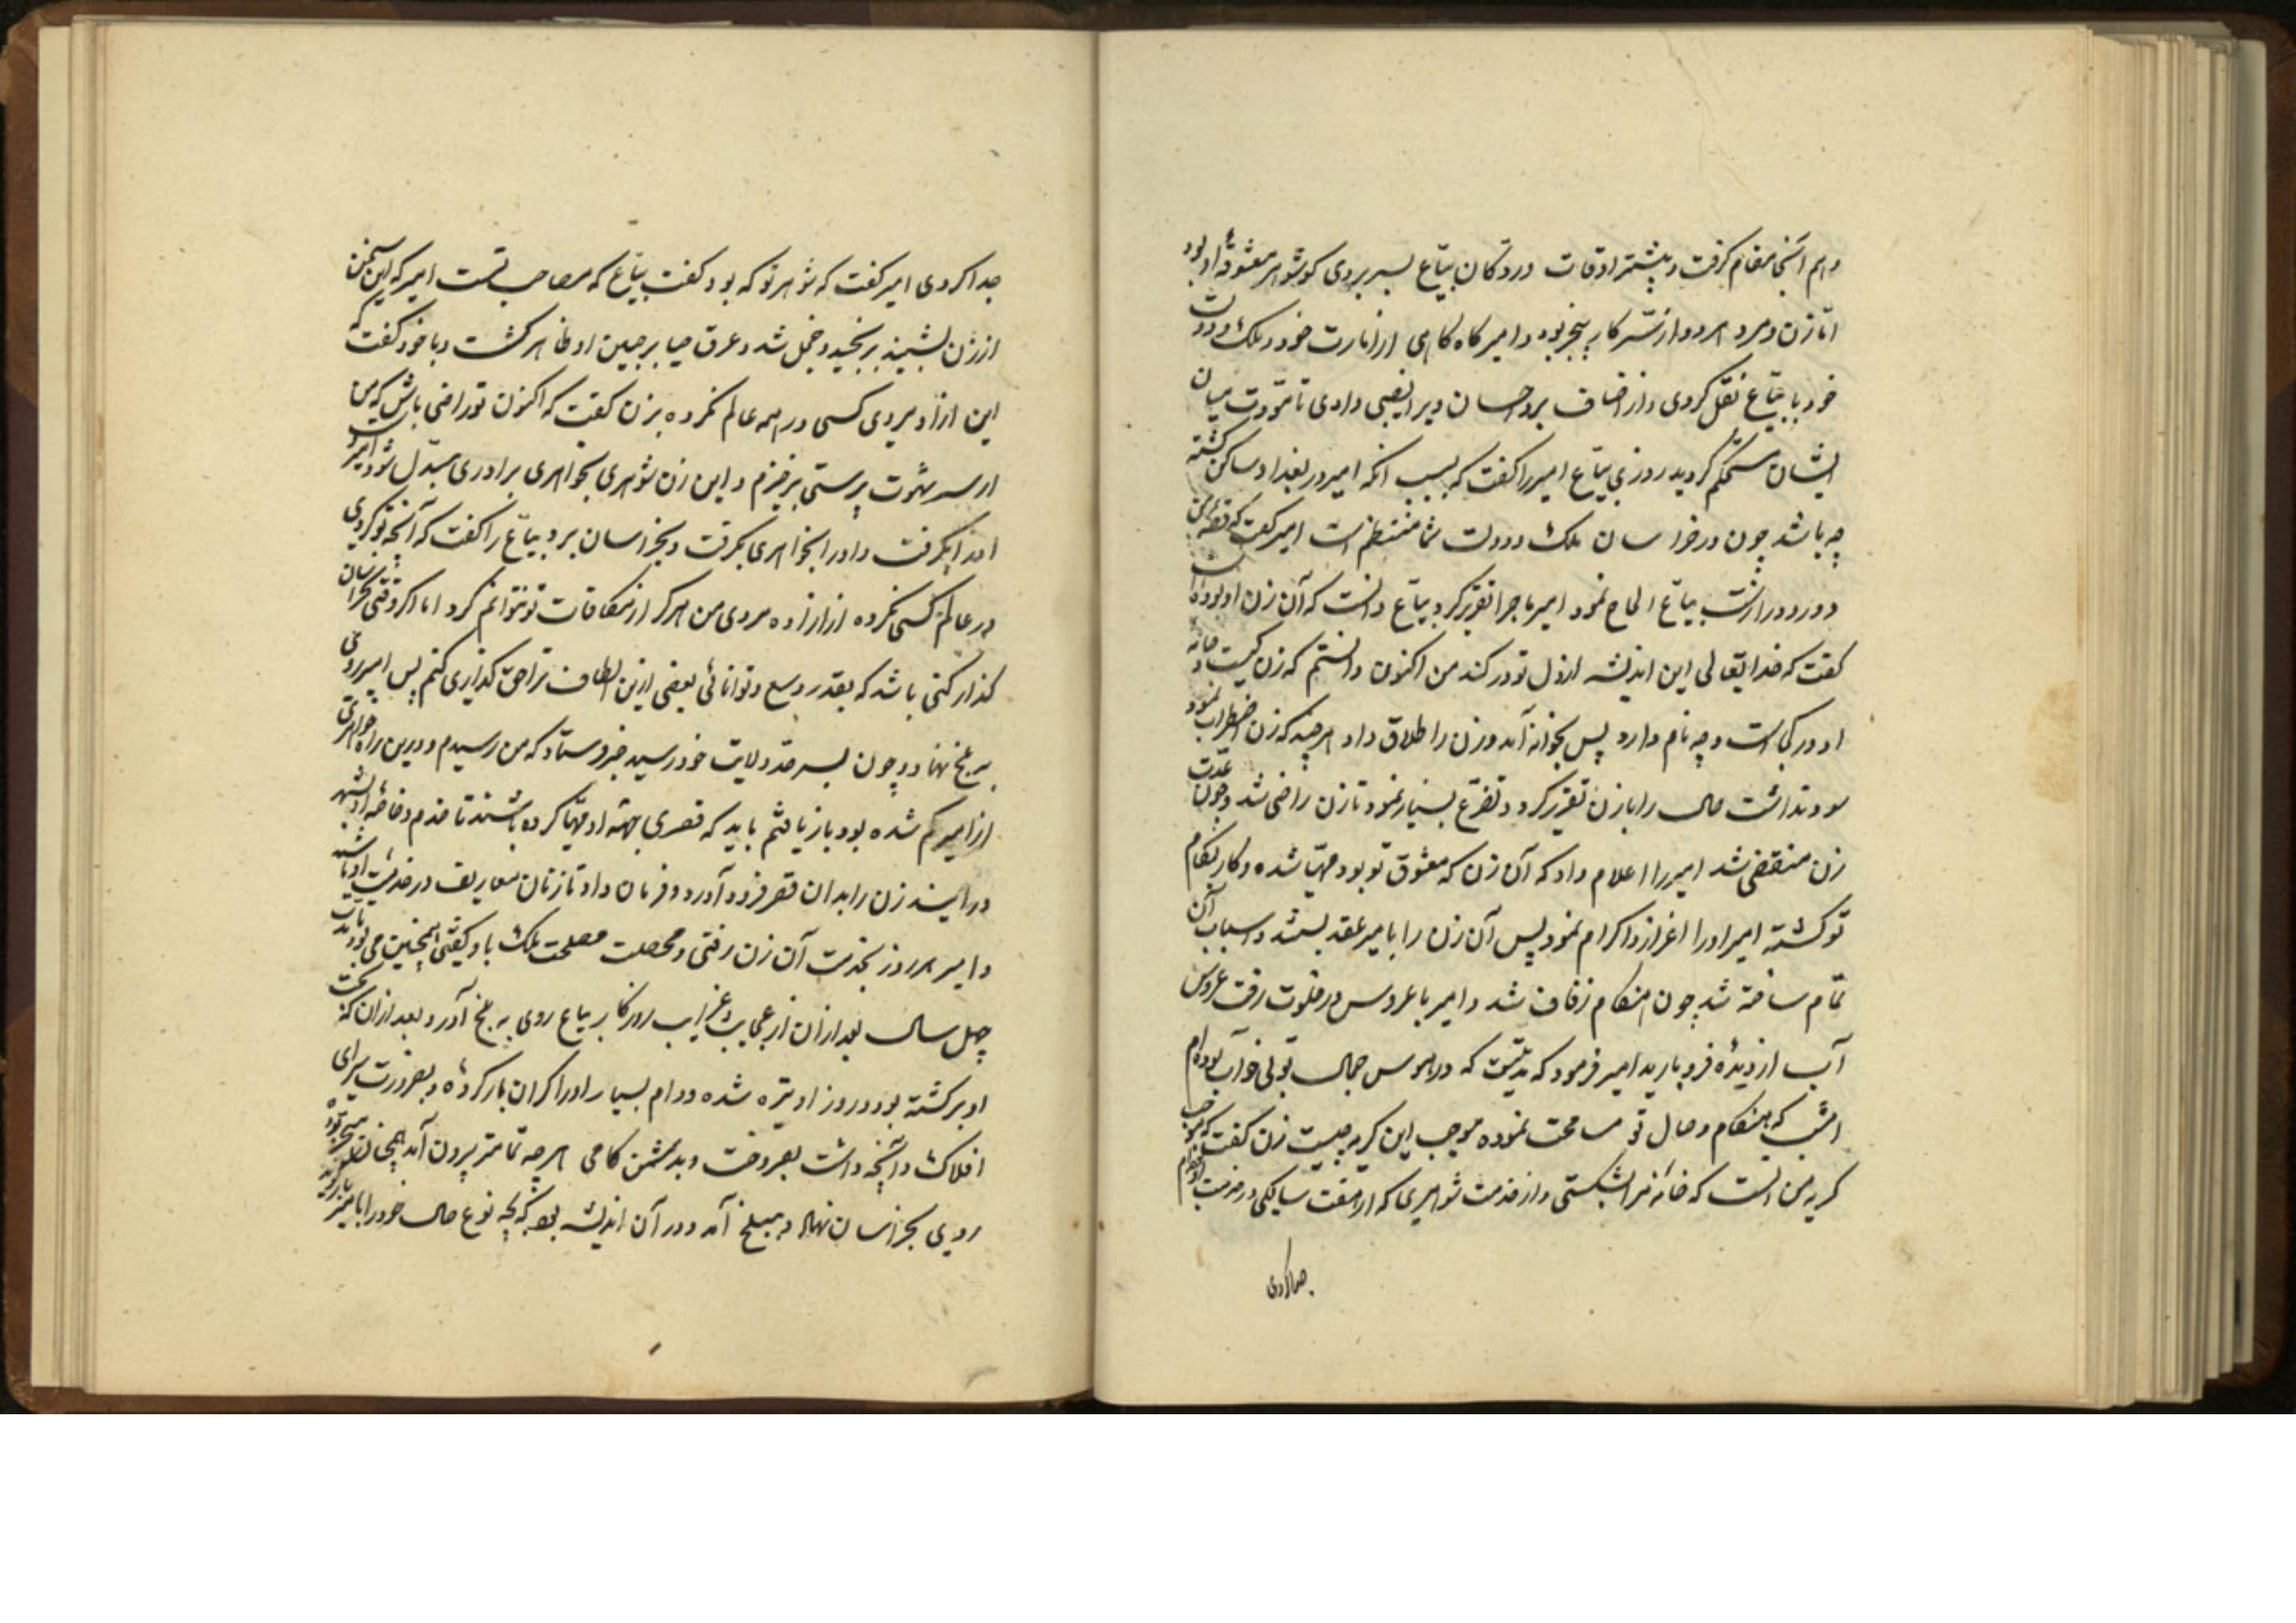 و هم آنجا مقام گرفت و بیشتر اوقات در دکان بیاع بسر بردی که شوهر معشوقهٔ او بود
اما زن و مرد هر دو ازین سر کار بیخبر بود و امیر گاه گاهی از امارت خود و ملک و دولت
خود با بیاع نقل کردی و از اصناف بر و احسان ویرا نصیبی دادی تا مودت میان
ایشان مستحکم گردید روزی بیاع امیر را گفت که سبب آنکه امیر در بغداد ساکن گشته
چه باشد چون در خراسان ملک و دولت شما منتظم است امیر گفت که قصهٔ من
دور و درازست بیاع الحاح نمود امیر ماجرا تقریر کرد بیاع دانست که آن زن او بوده است
گفت که خدایتعالی این اندیشه از دل تو دور کند من اکنون دانستم که زن کیست و خانه
او در کجاست و چه نام دارد پس بخانه آمد و زن را طلاق داد هر چند که زن اضطراب نمود
سود نداشت حال را با زن تقریر کرد و تضرع بسیار نمود تا زن راضی شد و چون عدت
زن منقضی شد امیر را اعلام داد که آن زن که معشوق تو بود مهیا شده و کار بکام
تو گشته امیر او را اعزاز و اکرام نمود پس آن زن را با امیر عقد بستند و اسباب آن
تمام ساخته شد چون هنگام زفاف شد و امیر با عروس در خلوت رفت عروس
آب از دیده فرو بارید امیر فرمود که مدتیست که در هوس جمال تو بی خواب بوده‌ام
امشب که هنگام وصال تو مسامحت نموده موجب این گریه چیست زن گفت که موجب
گریه من آنست که خانه مرا بشکستی و از خدمت شوهری که از هفت سالگی در خدمت او بوده‌ام
جدا کردی
جدا کردی امیر گفت که شوهر تو که بود گفت بیاع که مصاحب تست امیر که این سخن
از زن بشنید برنجید و خجل شد و عرق حیا بر جبین او ظاهر گشت و با خود گفت که
این آزاد مردی کسی در همه عالم نکرده بزن گفت که اکنون تو راضی باش که من
از سر شهوت پرستی برخیزم و این زن شوهری بخواهری برادری مبدل شود امیر
او را بگرفت و او را بخواهری بگرفت و بخراسان برد بیاع را گفت که آنچه تو کردی
در عالم کسی نکرده از آزاده مردی من هرگز از مکافات تو نتوانم کرد اما اگر وقتی بخراسان
گذار کنی باشد که بقدر وسع و توانائی بعضی ازین الطاف ترا حق گذاری کنم پس امیر روی
به بلخ نهاد و چون بسر حد ولایت خود رسید خبر فرستاد که من رسیدم و درین راه خواهری
از امیر گم شده بود باز یافتم باید که قصری بجهة او مهیا کرده باشند تا خدم و خاصهٔ او بشهر
در آیند زن را بدان قصر فرود آورد و فرمان داد تا زنان معاریف در خدمت او باشند
و امیر هر روز بخدمت آن زن رفتی و مصلحت ملک باو گفتی همچنین می بود تا مدت
چهل سال بعد از آن از عجایب و غرایب روزگار بیاع روی به بلخ آورد بعد از آن که بخت
او برگشته بود و روز او تیره شده و وام بسیار او را گران بار کرده و بضرورت سرای
املاک و آنچه داشت بفروخت و بدشمن کامی هر چه تمامتر بیرون آمد
روی بخراسان نهاد و ببلخ آمد و در آن اندیشه بود که بچه نوع حال خود را با امیر باز گوید